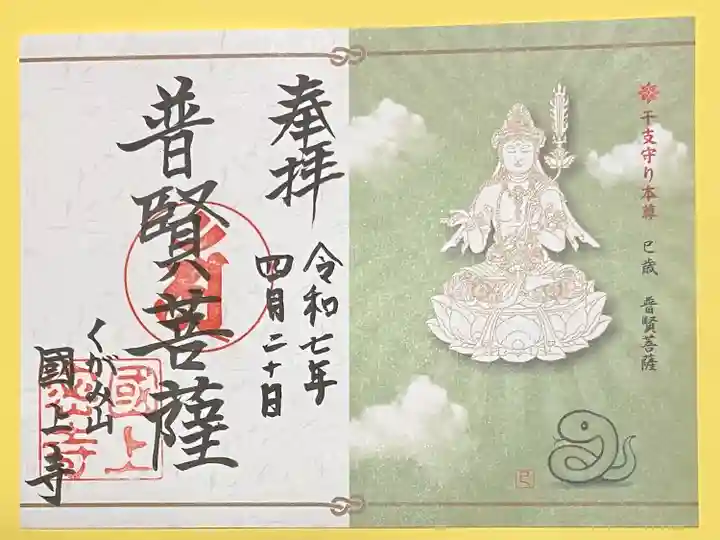 干支守り本尊 巳歳 普賢菩薩
巳
奉拝
令和七年
四月二十日
普賢菩薩
くがみ山
國上寺
國上